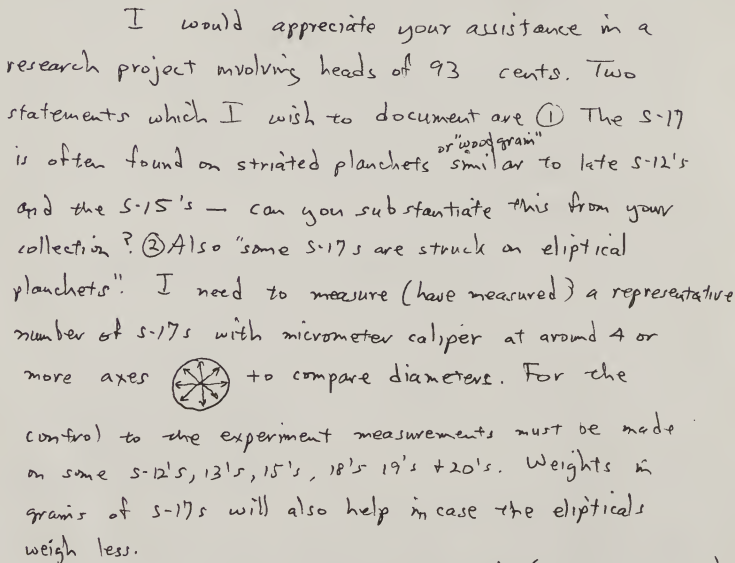 I would appreciate your assistance in a
research project involving heads of 93 cents. Two
statements which I wish to document are ① The S-17
is often found on striated planchets or "wood grain" similar to late S-12's
and the S-15's — can you substantiate this from your
collection? ② Also "some S-17s are struck on eliptical
planchets". I need to measure (have measured) a representative
number of S-17s with micrometer caliper at around 4 or
more axes to compare diameters. For the
control to the experiment measurements must be made
on some S-12's, 13's, 15's, 18's 19's + 20's. Weights in
grams of S-17s will also help in case the elipticals
weigh less.